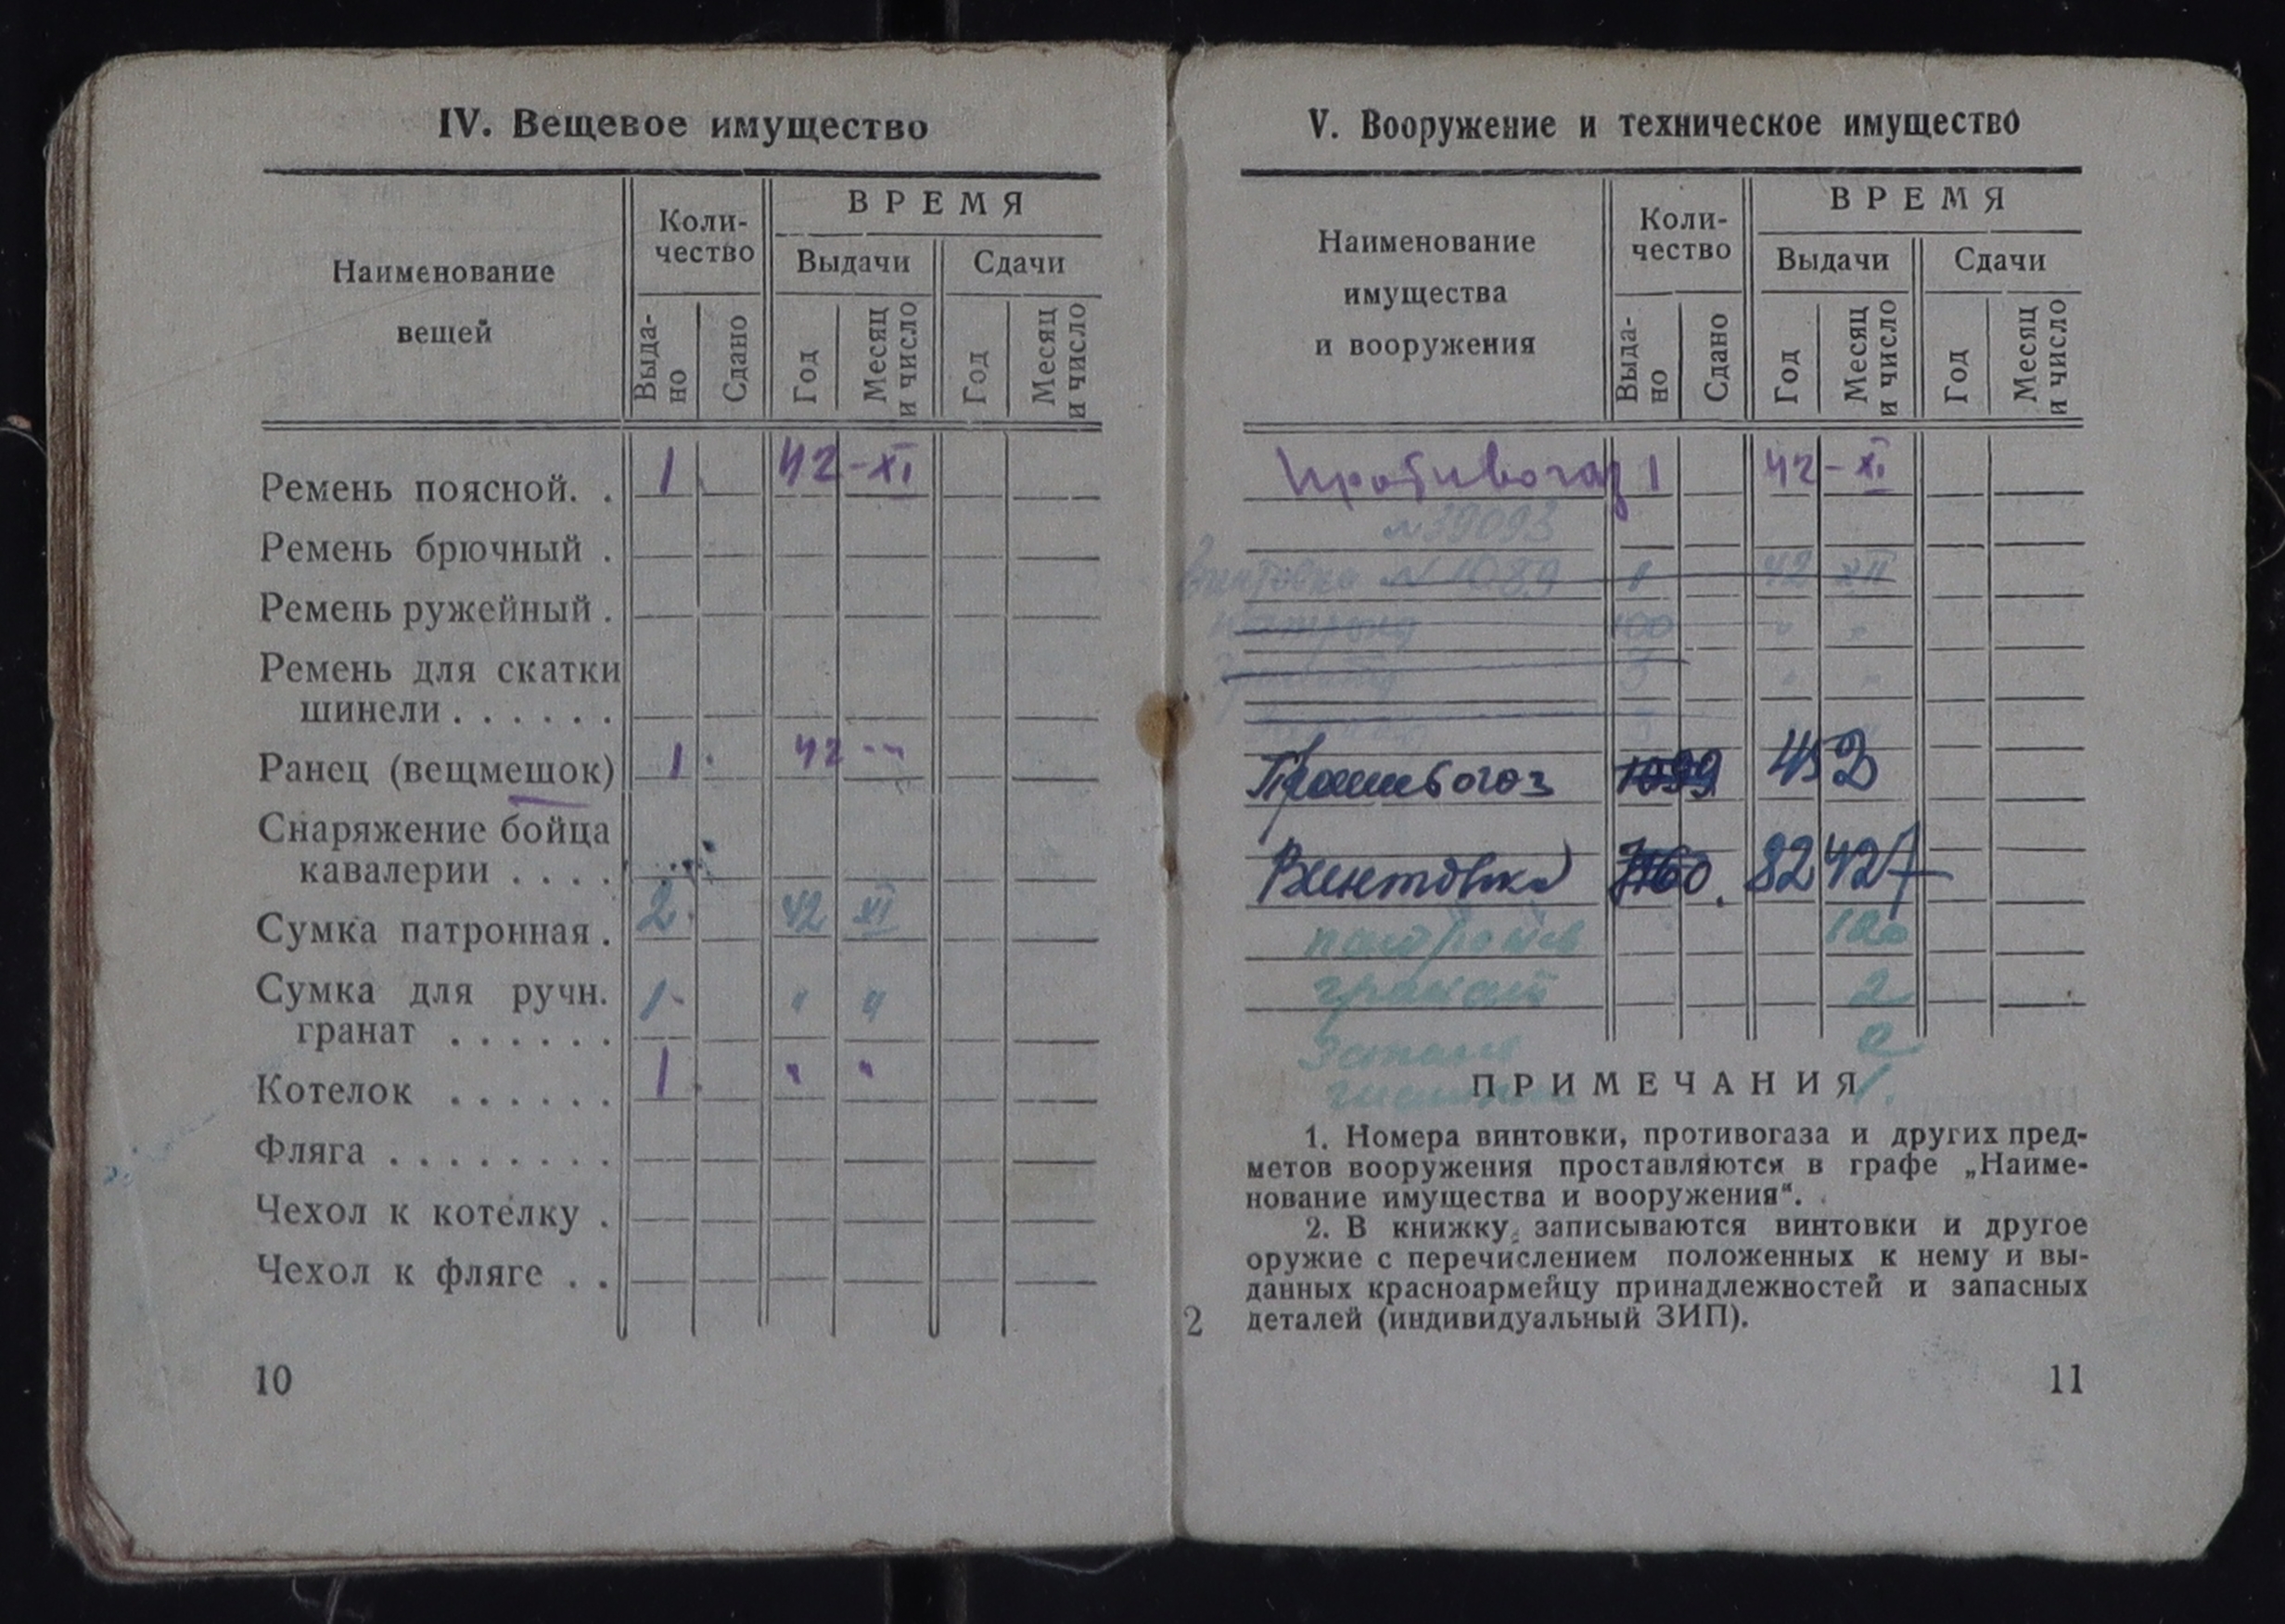 IV. Вещевое имущество
Наименование вещей
Коли-
чество
ВРЕМЯ
Выдачи
Сдачи
Выда-
но
Сдано
Год
Месяц
и число
Год
Месяц
и число
Ремень поясной. . 1 42 - XI
Ремень брючный .
Ремень ружейный .
Ремень для скатки
шинели . . . . . .
Ранец (вещмешок) 1 42 " "
Снаряжение бойца
кавалерии . . . .
Сумка патронная . 2 42 XI
Сумка для ручн. 1 " "
гранат . . . . . .
Котелок . . . . . . 1 " "
Фляга . . . . . . . .
Чехол к котелку .
Чехол к фляге . .
10
V. Вооружение и техническое имущество
Наименование
имущества
и вооружения
Коли-
чество
ВРЕМЯ
Выдачи
Сдачи
Выда-
но
Сдано
Год
Месяц
и число
Год
Месяц
и число
Противогаз 1 42 - XI
№39093
Винтовка №1089 1 42 XII
патроны 100 " "
3 " "
Противогаз
Винтовка
патронов 120
гранат 2
ПРИМЕЧАНИЯ
1. Номера винтовки, противогаза и других пред-
метов вооружения проставляются в графе „Наиме-
нование имущества и вооружения“.
2. В книжку записываются винтовки и другое
оружие с перечислением положенных к нему и вы-
данных красноармейцу принадлежностей и запасных
деталей (индивидуальный ЗИП).
2
11